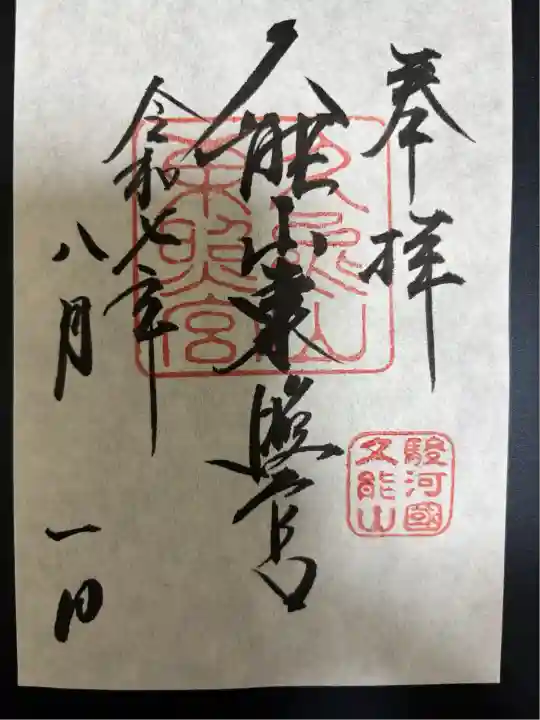 奉拝
久能山東照宮
令和七年
八月一日
久能山
東照宮
駿河國
久能山